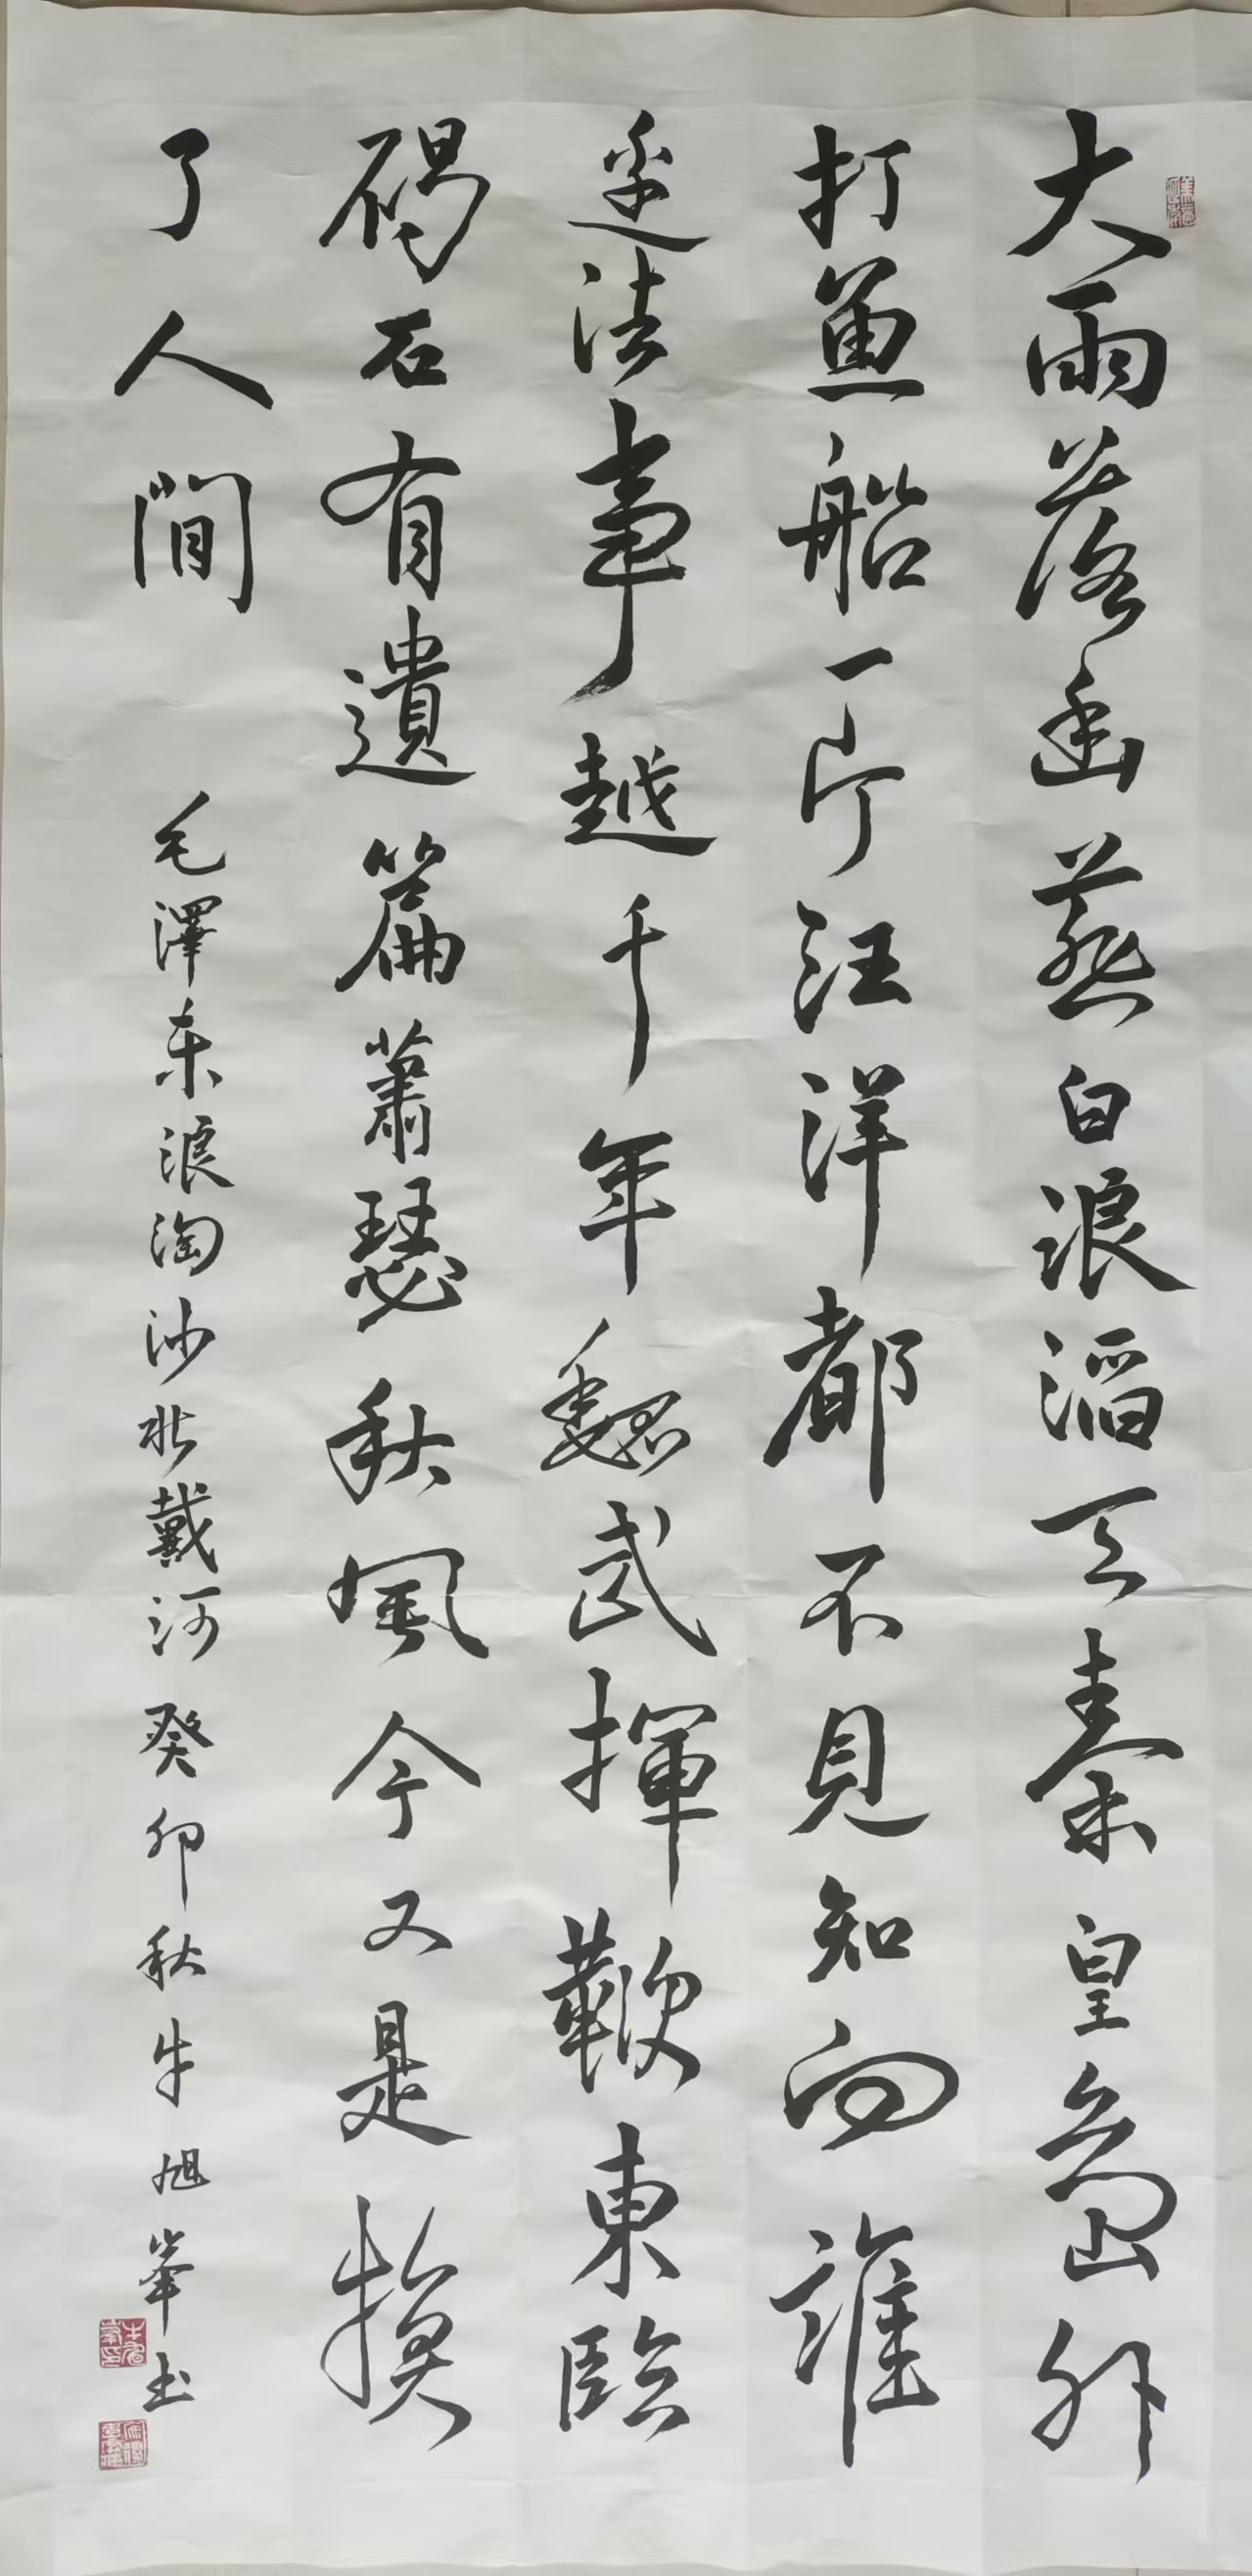 大雨落幽燕白浪滔天秦皇島外
打魚船一片汪洋都不見知向誰
邊往事越千年魏武揮鞭東臨
碣石有遺篇蕭瑟秋風今又是換
了人間 毛澤东浪淘沙北戴河 癸卯秋牛旭峯书